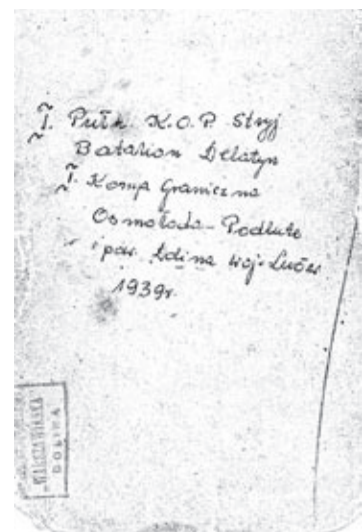 I. Pułk K.O.P. Stryj
Batalion Delatyn
I. Komp Graniczna
Osmołoda - Podlute
pow.
1939r.
DOLINA